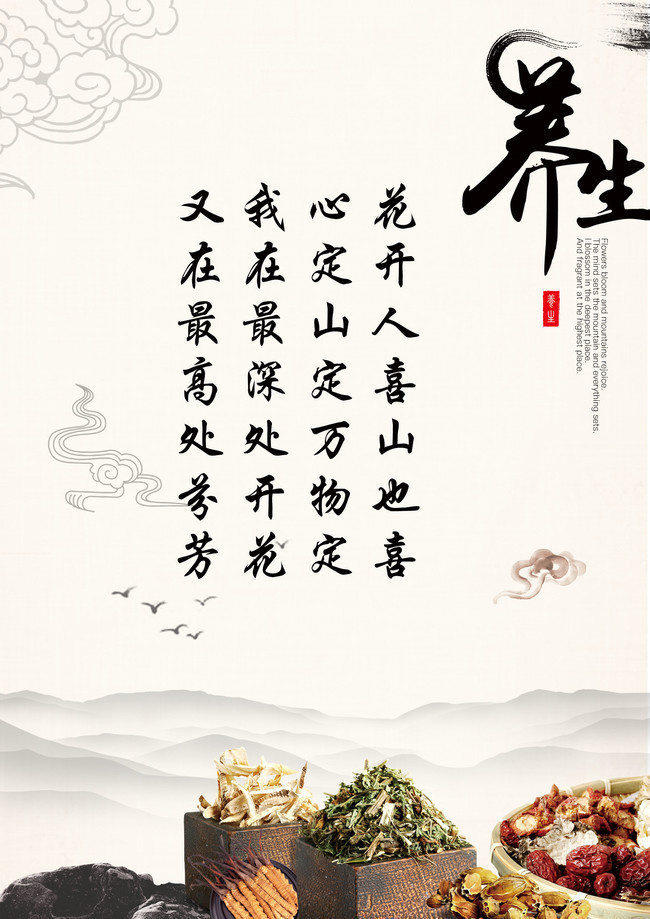 养生
Flowers bloom and mountains rejoice.
The mind sets the mountain and everything sets.
I blossom in the deepest place.
And fragrant at the highest place.
養生
花开人喜山也喜
心定山定万物定
我在最深处开花
又在最高处芬芳